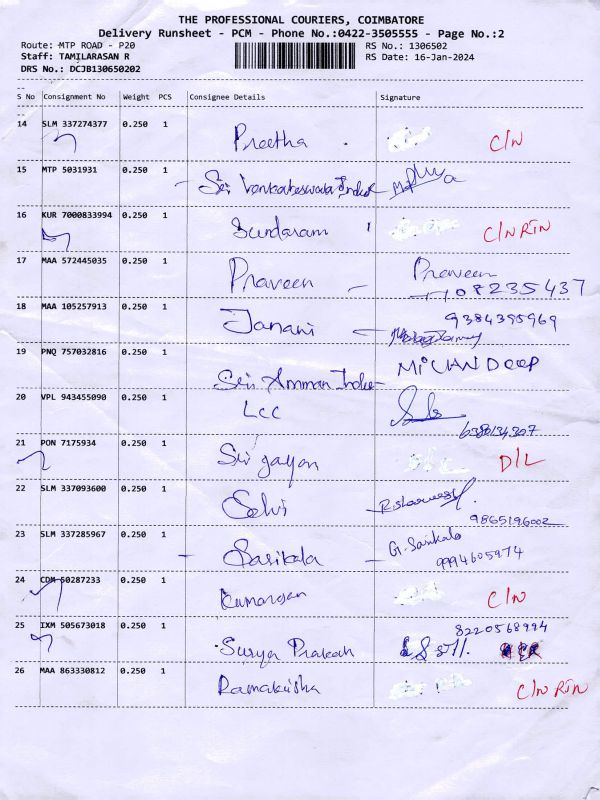 THE PROFESSIONAL COURIERS, COIMBATORE
Delivery Runsheet - PCM - Phone No.:0422-3505555 - Page No.:2
Route: MTP ROAD - P20 RS No.: 1306502
Staff: TAMILARASAN R RS Date: 16-Jan-2024
DRS No.: DCJB130650202
S No Consignment No Weight PCS Consignee Details Signature
14 SLM 337274377 0.250 1 Preetha C/N
15 MTP 5031931 0.250 1 Sri Venkateswara
16 KUR 7000833994 0.250 1 Sundaram C/N RTN
17 MAA 572445035 0.250 1 Praveen Praveen
08235437
18 MAA 105257913 0.250 1 Janani 9384395969
19 PNQ 757032816 0.250 1 Sri Amman
20 VPL 943455090 0.250 1 LCC
21 PON 7175934 0.250 1 D/L
22 SLM 337093600 0.250 1 Selvi
9865196002
23 SLM 337285967 0.250 1 Sasikala G. Sasikala
9994605974
24 CDM 60287233 0.250 1 Kumaran C/N
25 IXM 505673018 0.250 1 Surya Prakash 8220568994
26 MAA 863330812 0.250 1 Ramakrisha C/N RTN